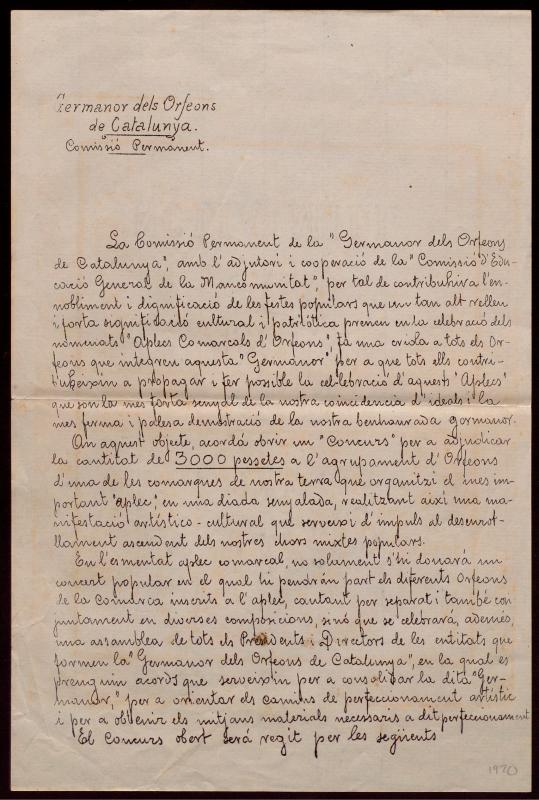 Germanor dels Orfeons
de Catalunya.
Comissió Permanent.
La Comissió Permanent de la "Germanor dels Orfeons
de Catalunya", amb l'adjutori i cooperació de la "Comissió d'Edu-
cació General de la Mancomunitat", per tal de contribuhir a l'en-
nobliment i dignificació de les festes populars que un tan alt relleu
i forta significació cultural i patriòtica prenen en la celebració dels
nomenats "Aplecs Comarcals d'Orfeons", fà una crida a tots els Or-
feons que integren aquesta "Germanor" per a que tots ells contri-
buheixin a propagar i fer possible la cel·lebració d'aquests "Aplecs"
que son la mes forta senyal de la nostra coincidencia d'ideals i la
mes ferma i palesa demostració de la nostra benhaurada germanor.
An aquest objecte, acordá obrir un "Concurs" per a adjudicar
la cantitat de 3000 pessetes a l'agrupament d'Orfeons
d'una de les comarques de nostra terra que organitzi el mes im-
portant "aplec", en una diada senyalada, realitzant així una ma-
nifestació artístico-cultural que serveixi d'impuls al desenrot-
llament ascendent dels nostres chors mixtes populars.
En l'esmentat aplec comarcal, no solument s'hi donará un
concert popular en el qual hi pendrán part els diferents Orfeons
de la Comarca inscrits a l'aplec, cantant per separat i també con
juntament en diverses composicions, sinó que se celebrará, ademés,
una assamblea de tots els Presidents i Directors de les entitats que
formen la "Germanor dels Orfeons de Catalunya", en la qual es
prenguin acords que serveixin per a consolidar la dita "Ger-
manor," per a orientar els camins de perfeccionament artístic
i per a obtenir els mitjans materials necessaris a dit perfeccionament
El Concurs obert será regit per les següents
1920